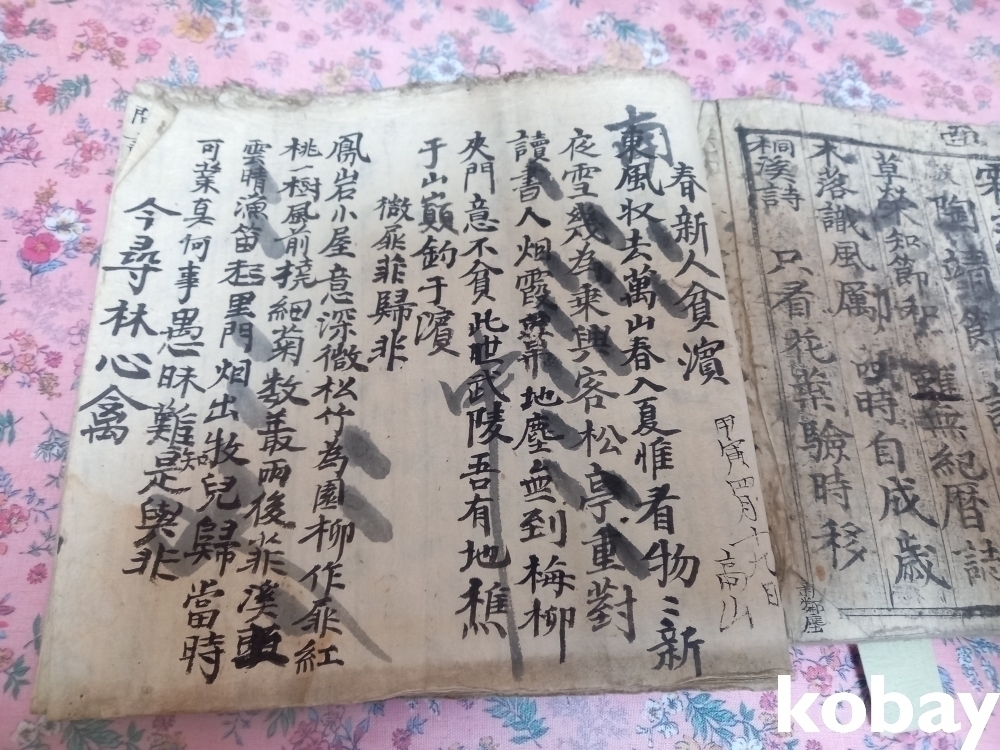 陶靖節
草榮知節和 雖無紀曆誌
木落識風厲 四時自成歲
桐溪詩 只看花葉驗時移
甲寅四月十九日 高山
春新人貧濱
東風收去萬山春入夏惟看物〻新
夜雪幾為乘興客松亭重對
讀書人烟霞 地塵無到梅柳
夾門意不貧此世武陵吾有地樵
于山巔釣于濱
微扉菲歸非
鳳岩小屋意深微松竹為園柳作扉紅
桃一樹風前撓細菊數叢雨後菲溪
雲晴漁笛 里門烟出牧兒歸當時
可業真何事愚昧難知是與非
今尋林心禽